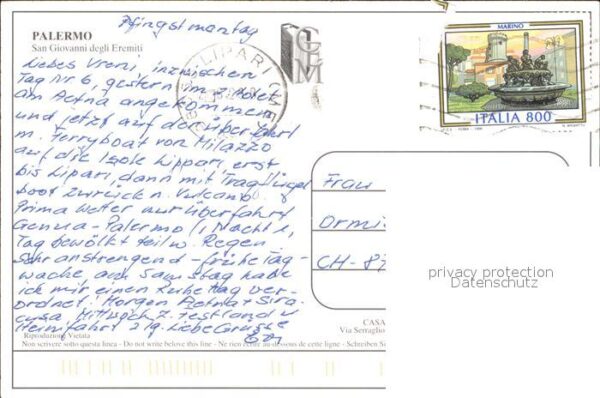 Pfingstmontag
PALERMO
San Giovanni degli Eremiti
Liebes Vreni, inzwischen
Tag Nr 6, gestern im 3. Hotel
am Aetna angekommen
und jetzt auf der Überfahrt
m. Ferryboat von Milazzo
auf die Isole Lippari, erst
bis Lipari, dann mit Tragflügel
boot zurück n. Vulcano.
Prima Wetter nur Überfahrt
Genua - Palermo (1 Nacht 1
Tag bewölkt teilw. Regen.
Sehr anstrengend - frühe Tag-
wache, am Samstag habe
ich mir einen Ruhetag ver-
ordnet. Morgen Aetna + Sira-
cusa, Mittwoch z. Festland u
Heimfahrt 2 Tg. Liebe Grüsse
LIPARI (ME)
MARINO
ITALIA 800
Frau
Ormi
CH-87
privacy protection
Datenschutz
CASA
Via Serraglio
Riproduzione Vietata
Non scrivere sotto questa linea - Do not write below this line - Ne rien écrire au-dessous de cette ligne - Schreiben Si